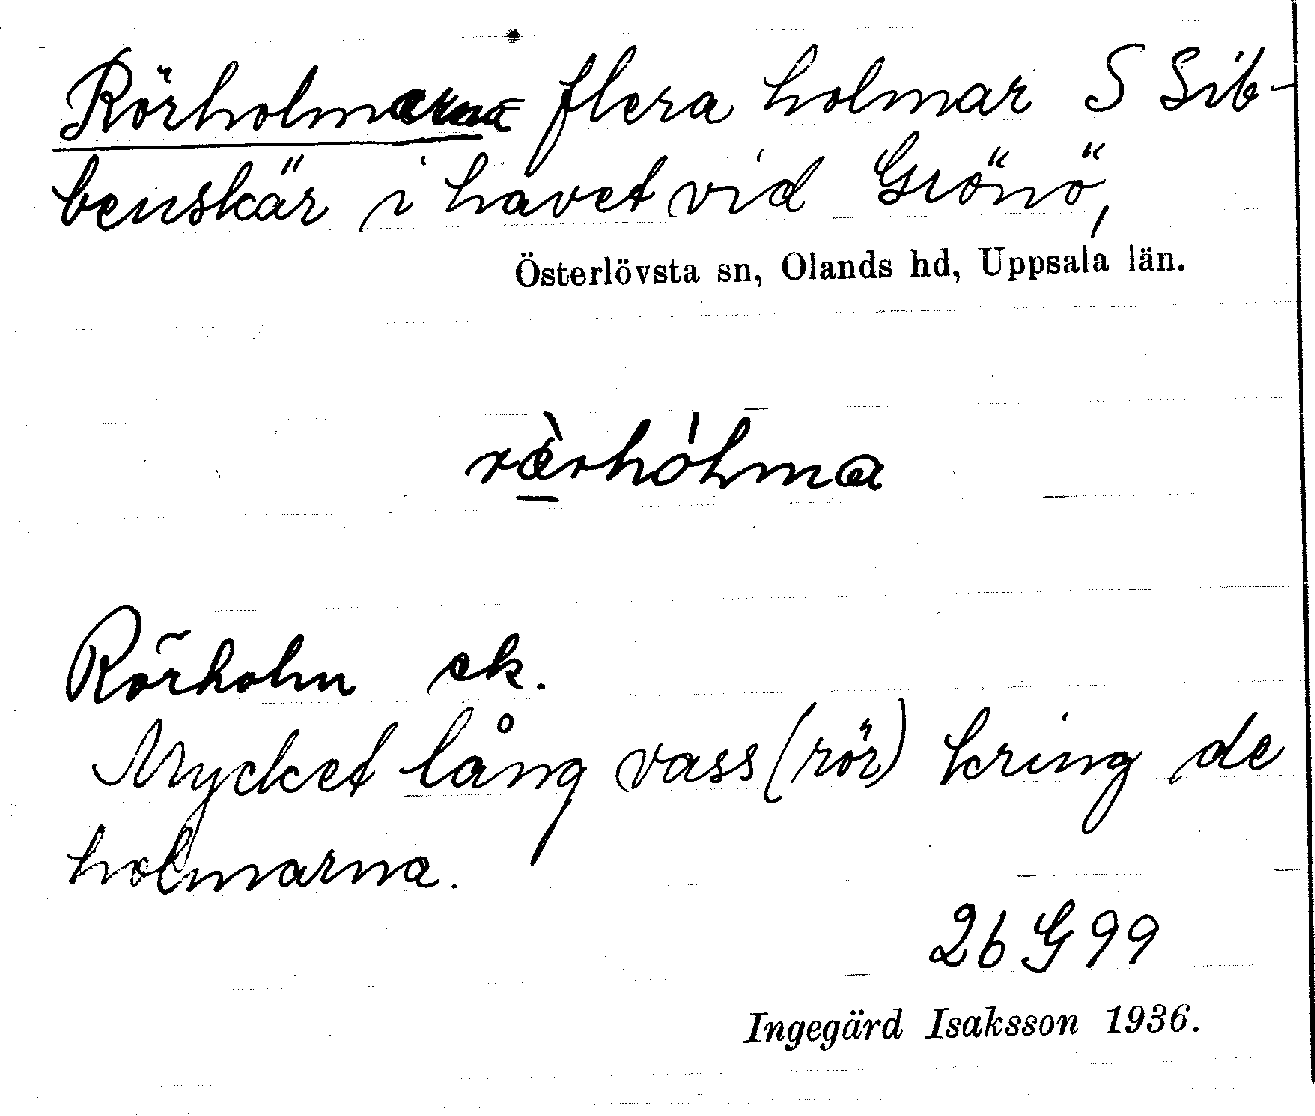 Rörholmarna flera holmar S Sib-
benskär i havet vid Grönö,
Österlövsta sn, Olands hd, Uppsala län.
rœ̀rhólma
Rörholm ek.
Mycket lång vass (rör) kring de
holmarna.
26 G 99
Ingegärd Isaksson 1936.